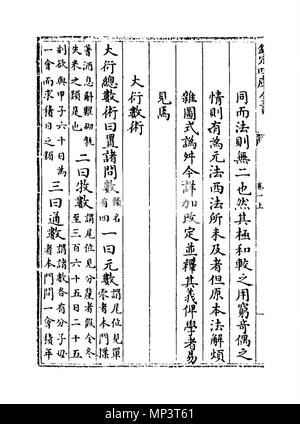 欽定四庫全書
卷一上
同而法則無二也然其極和較之用窮奇偶之
情則有為元法西法所未及者但原本法解煩
雜圖式譌舛今詳加改定並釋其義俾學者易
見焉
大衍數術
大衍總數術曰置諸問數類名有四一曰元數謂尾位見單零者本門揲
蓍酒息斛糶砌甎失米之類是也二曰收數謂尾位見分釐者假令冬至三百六十五日二十五
刻欲與甲子六十日為一會而求積日之類三曰通數謂諸數各有分子母者本門問一會積年
alamy
Image ID: MP3T61
www.alamy.com